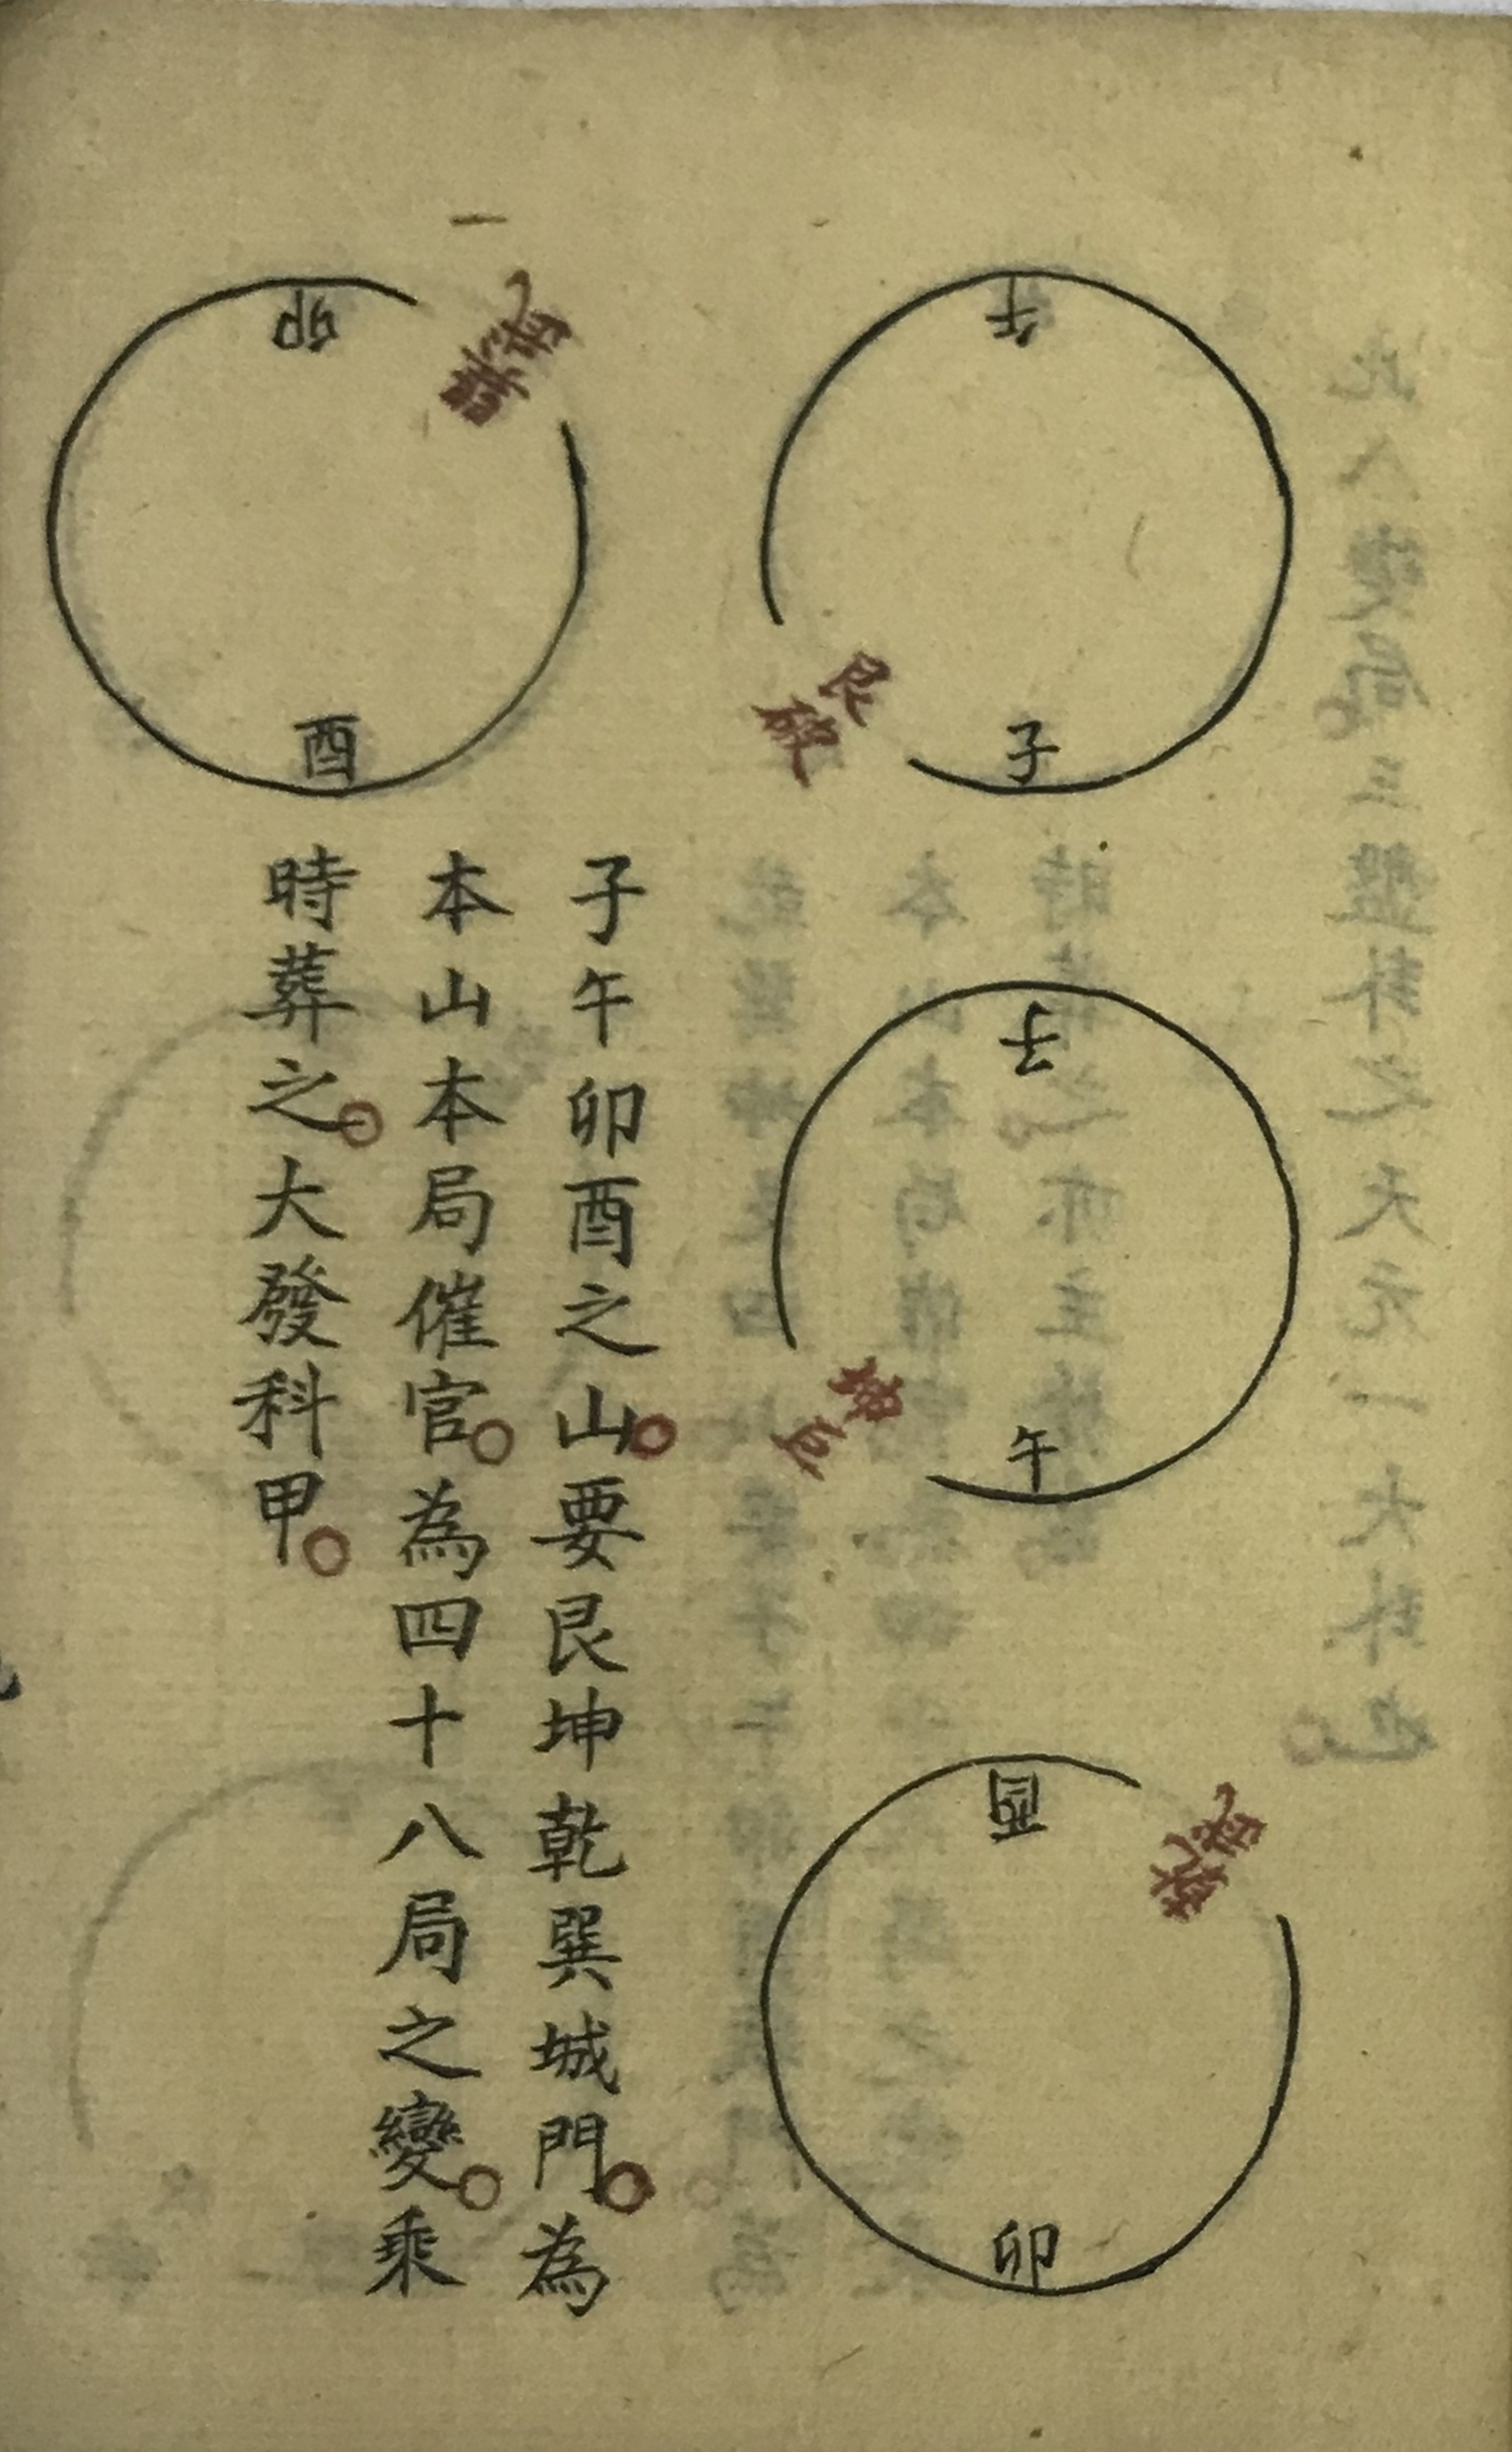 午
子
艮
子
午
坤
酉
卯
乾
卯
酉
子午卯酉之山。要艮坤乾巽城門。為
本山本局催官。為四十八局之變。乘
時葬之。大發科甲。